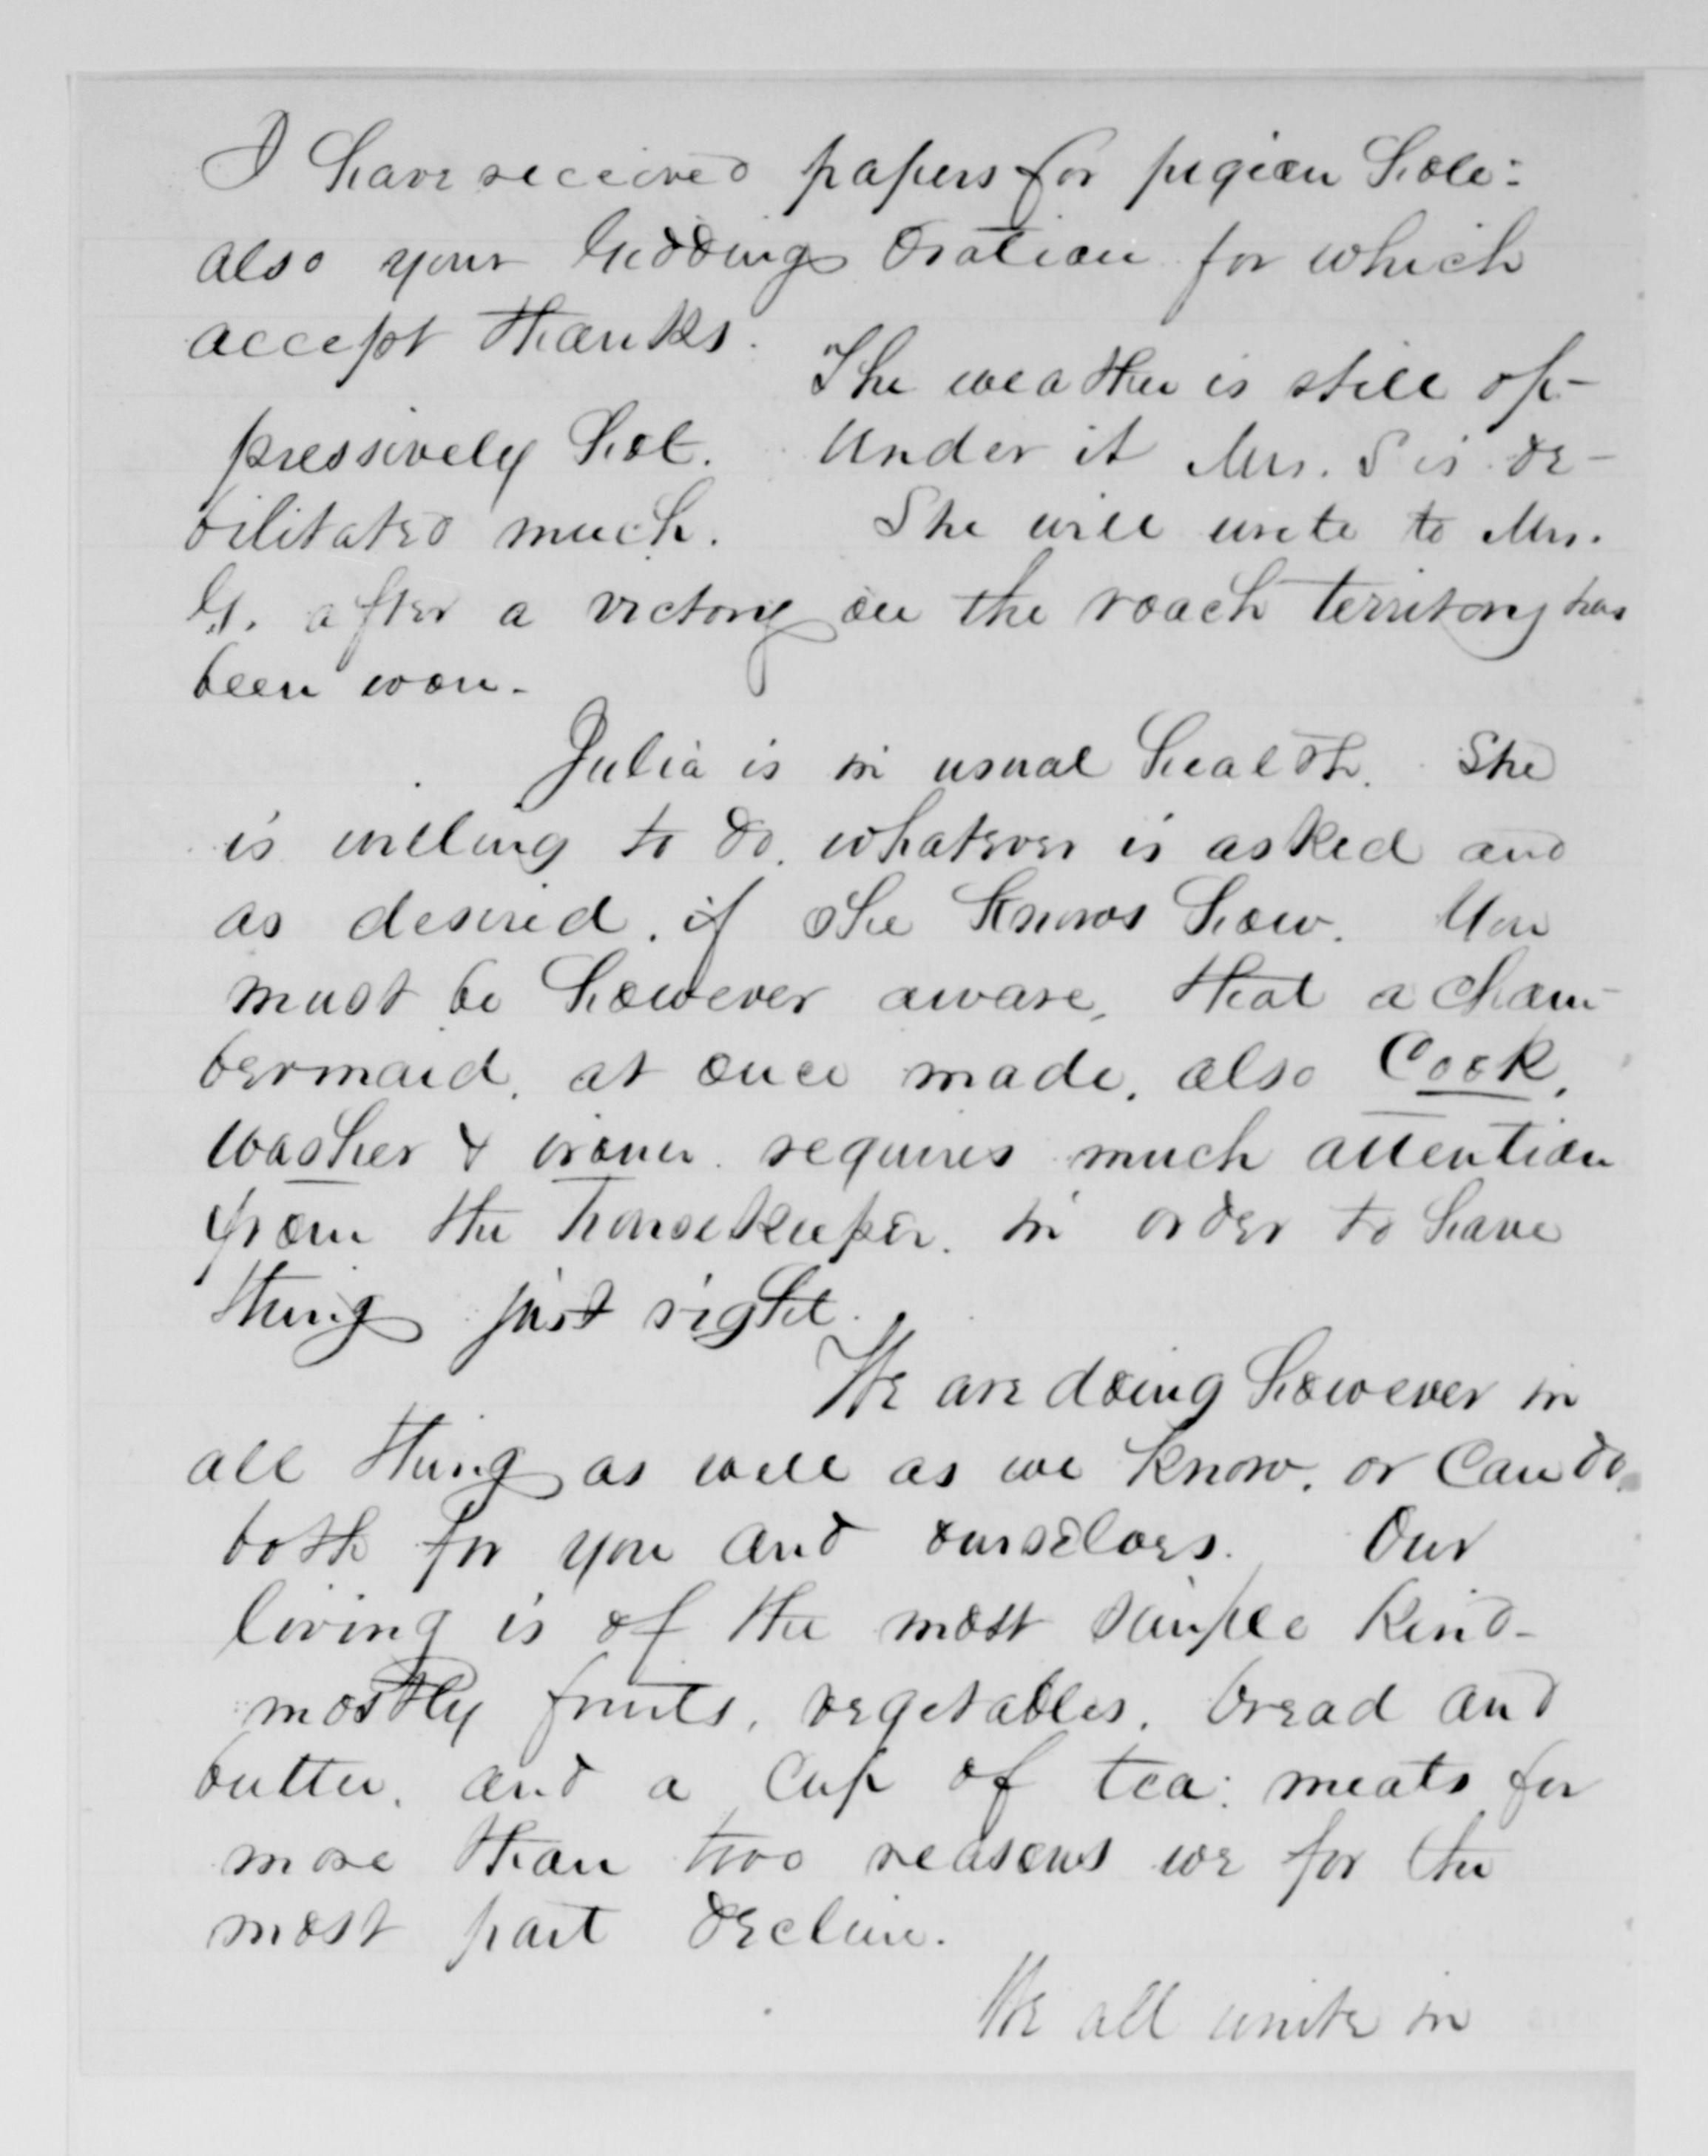 I have received papers for pigeon hole:
also your Giddings Oration for which
accept thanks.
The weather is still op-
pressively hot. Under it Mrs. S is de-
bilitated much. She will write to Mrs.
G. after a victory on the roach territory has
been won.
Julia is in usual health. She
is willing to do. whatever is asked and
as desired. if she knows how. You
must be however aware, that a cham-
bermaid, at once made, also Cook,
washer & ironer. requires much attention
from the housekeeper. in order to have
things just right.
We are doing however in
all things as well as we know. or can do,
both for you and ourselves. Our
living is of the most simple kind-
mostly fruits, vegetables, bread and
butter, and a cup of tea: meats for
more than two reasons we for the
most part decline.
We all unite in